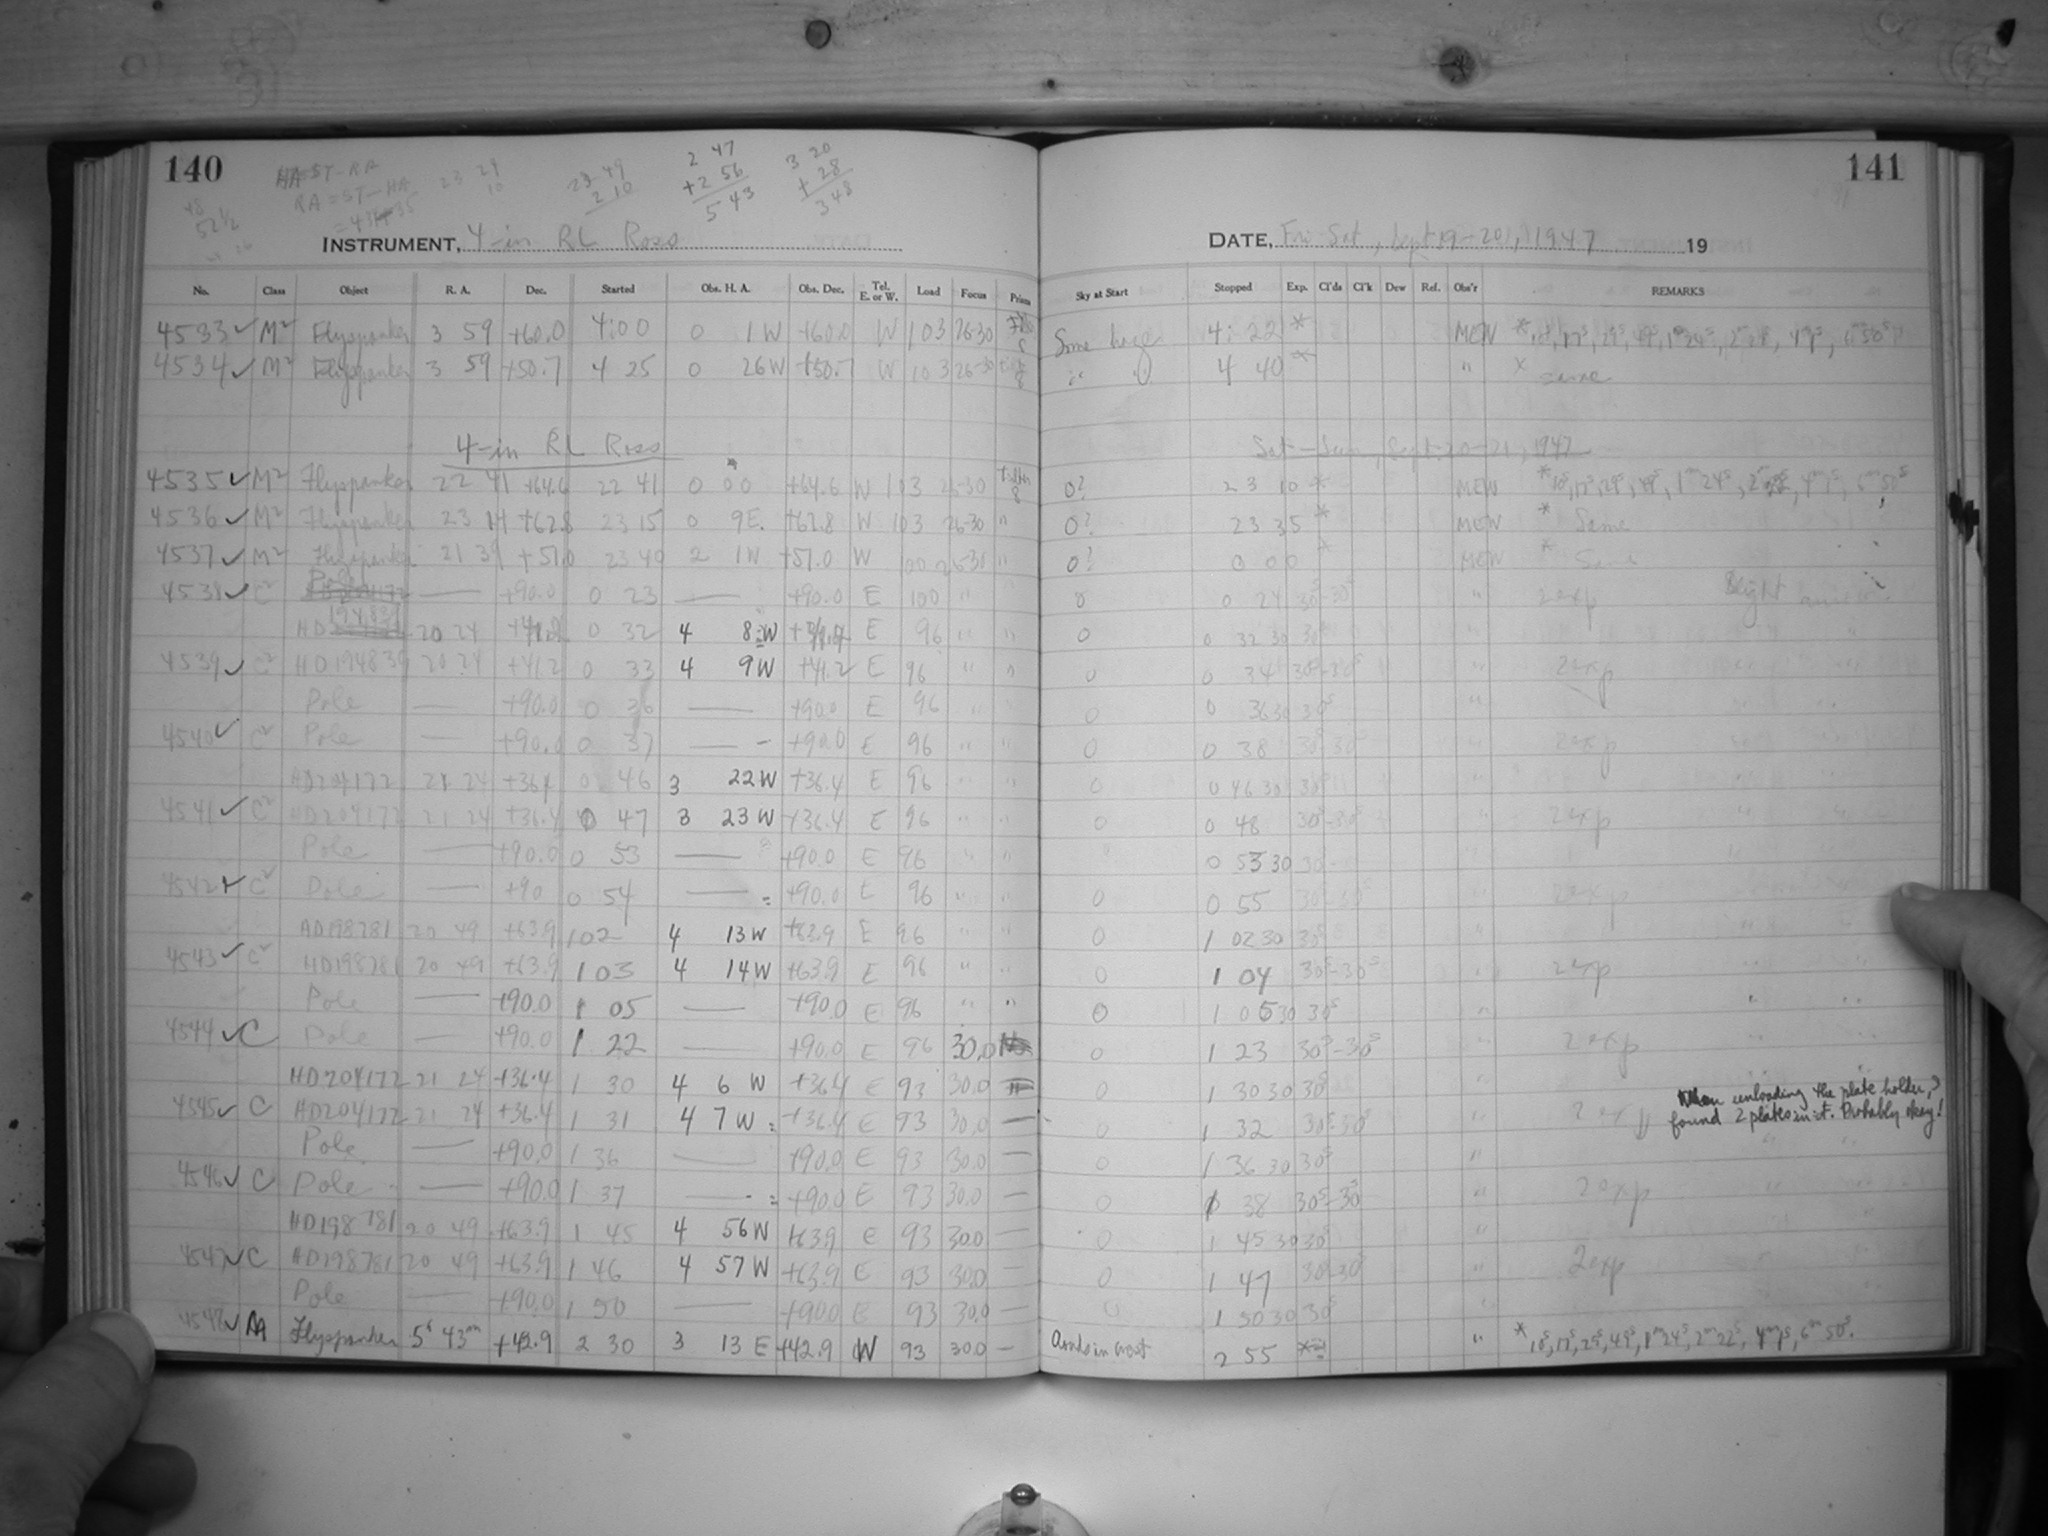 140
HA=ST-RA
RA=ST-HA
23 29
10
23 49
2 10
2 47
+2 56
5 43
3 20
+ 28
3 48
52 1/2
INSTRUMENT, 4-in RL Ross
No. Class Object R. A. Dec. Started Obs. H. A. Obs. Dec. Tel. E. or W. Load Focus Prism
4533 ✓ M² Flyspanker 3 59 +60.0 4:00 0 1W +60.0 W 103 26-30
4534 ✓ M² Flyspanker 3 59 +50.7 4 25 0 26W +50.7 W 103 26-30
4-in RL Ross
4535 ✓ M² Flyspanker 22 41 +64.6 22 41 0 00 +64.6 W 103 26-30 Filter 8
4536 ✓ M² Flyspanker 23 14 +62.8 23 15 0 9E. +62.8 W 103 26-30 "
4537 ✓ M² Flyspanker 21 39 +51.0 23 40 2 1W +51.0 W 100 26-30 "
4538 ✓ C² Pole — +90.0 0 23 — +90.0 E 100 " "
HD 194839 20 24 0 32 4 8W E 96 " "
4539 ✓ C² HD194839 20 24 +41.2 0 33 4 9W +41.2 E 96 " "
Pole — +90.0 0 36 — +90.0 E 96 " "
4540 ✓ C² Pole — +90.0 0 37 — +90.0 E 96 " "
HD204172 21 24 +36.4 0 46 3 22W +36.4 E 96 " "
4541 ✓ C² HD204172 21 24 +36.4 0 47 3 23W +36.4 E 96 " "
Pole — +90.0 0 53 — +90.0 E 96 " "
4542 ✓ C² Pole — +90 0 54 — +90.0 E 96 " "
HD198781 20 49 +63.9 1 02 4 13W +63.9 E 96 " "
4543 ✓ C² HD198781 20 49 +63.9 1 03 4 14W +63.9 E 96 " "
Pole — +90.0 1 05 — +90.0 E 96 " "
4544 ✓ C Pole — +90.0 1 22 — +90.0 E 96 30.0
HD204172 21 24 +36.4 1 30 4 6 W +36.4 E 93 30.0
4545 ✓ C HD204172 21 24 +36.4 1 31 4 7 W +36.4 E 93 30.0 —
Pole — +90.0 1 36 — +90.0 E 93 30.0 —
4546 ✓ C Pole — +90.0 1 37 — +90.0 E 93 30.0 —
HD198781 20 49 +63.9 1 45 4 56W +63.9 E 93 30.0 —
4547 ✓ C HD198781 20 49 +63.9 1 46 4 57W +63.9 E 93 30.0 —
Pole — +90.0 1 50 — +90.0 E 93 30.0 —
4548 ✓ AA Flyspanker 5ʰ 43ᵐ +42.9 2 30 3 13 E +42.9 W 93 30.0 —
141
DATE, Fri-Sat, Sept 19-20, 1947 19
Sky at Start Stopped Exp. Cl'ds Cl'k Dew Ref. Obs'r REMARKS
Some haze 4: 22 * MEW
" " 4 40 * " * same
Sat-Sun, Sept. 20-21, 1947
0? 23 10 * MEW *10ˢ, 17ˢ, 29ˢ, 49ˢ, 1ᵐ24ˢ, 2ᵐ22ˢ, 4ᵐ1ˢ, 6ᵐ50ˢ
0? 23 35 * MEW * Same
0? 0 00 * MEW * Same
0 0 24 30ˢ-30ˢ " 2 exp Bright
0 0 32 30 30ˢ "
0 0 34 30ˢ-30ˢ " 2 exp " "
0 0 36 30 30ˢ "
0 0 38 30ˢ-30ˢ " 2 exp " "
0 0 46 30 30ˢ "
0 0 48 30ˢ-30ˢ " 2 exp " "
0 53 30 30
0 0 55 30ˢ-30ˢ " 2 exp
0 1 02 30 30ˢ "
0 1 04 30ˢ-30ˢ " 2 exp "
0 1 05 30 30ˢ " " "
0 1 23 30ˢ-30ˢ " 2 exp " "
0 1 30 30 30ˢ "
When unloading the plate holder,
0 1 32 30ˢ-30ˢ " 2 exp found 2 plates in it. Probably okay!
0 1 36 30 30ˢ " " "
0 1 38 30ˢ-30ˢ " 2 exp " "
0 1 45 30 30ˢ "
0 1 47 30ˢ-30ˢ " 2 exp
0 1 50 30 30ˢ "
Clouds in west 2 55 * " *10ˢ, 17ˢ, 29ˢ, 49ˢ, 1ᵐ24ˢ, 2ᵐ22ˢ, 4ᵐ1ˢ, 6ᵐ50ˢ.